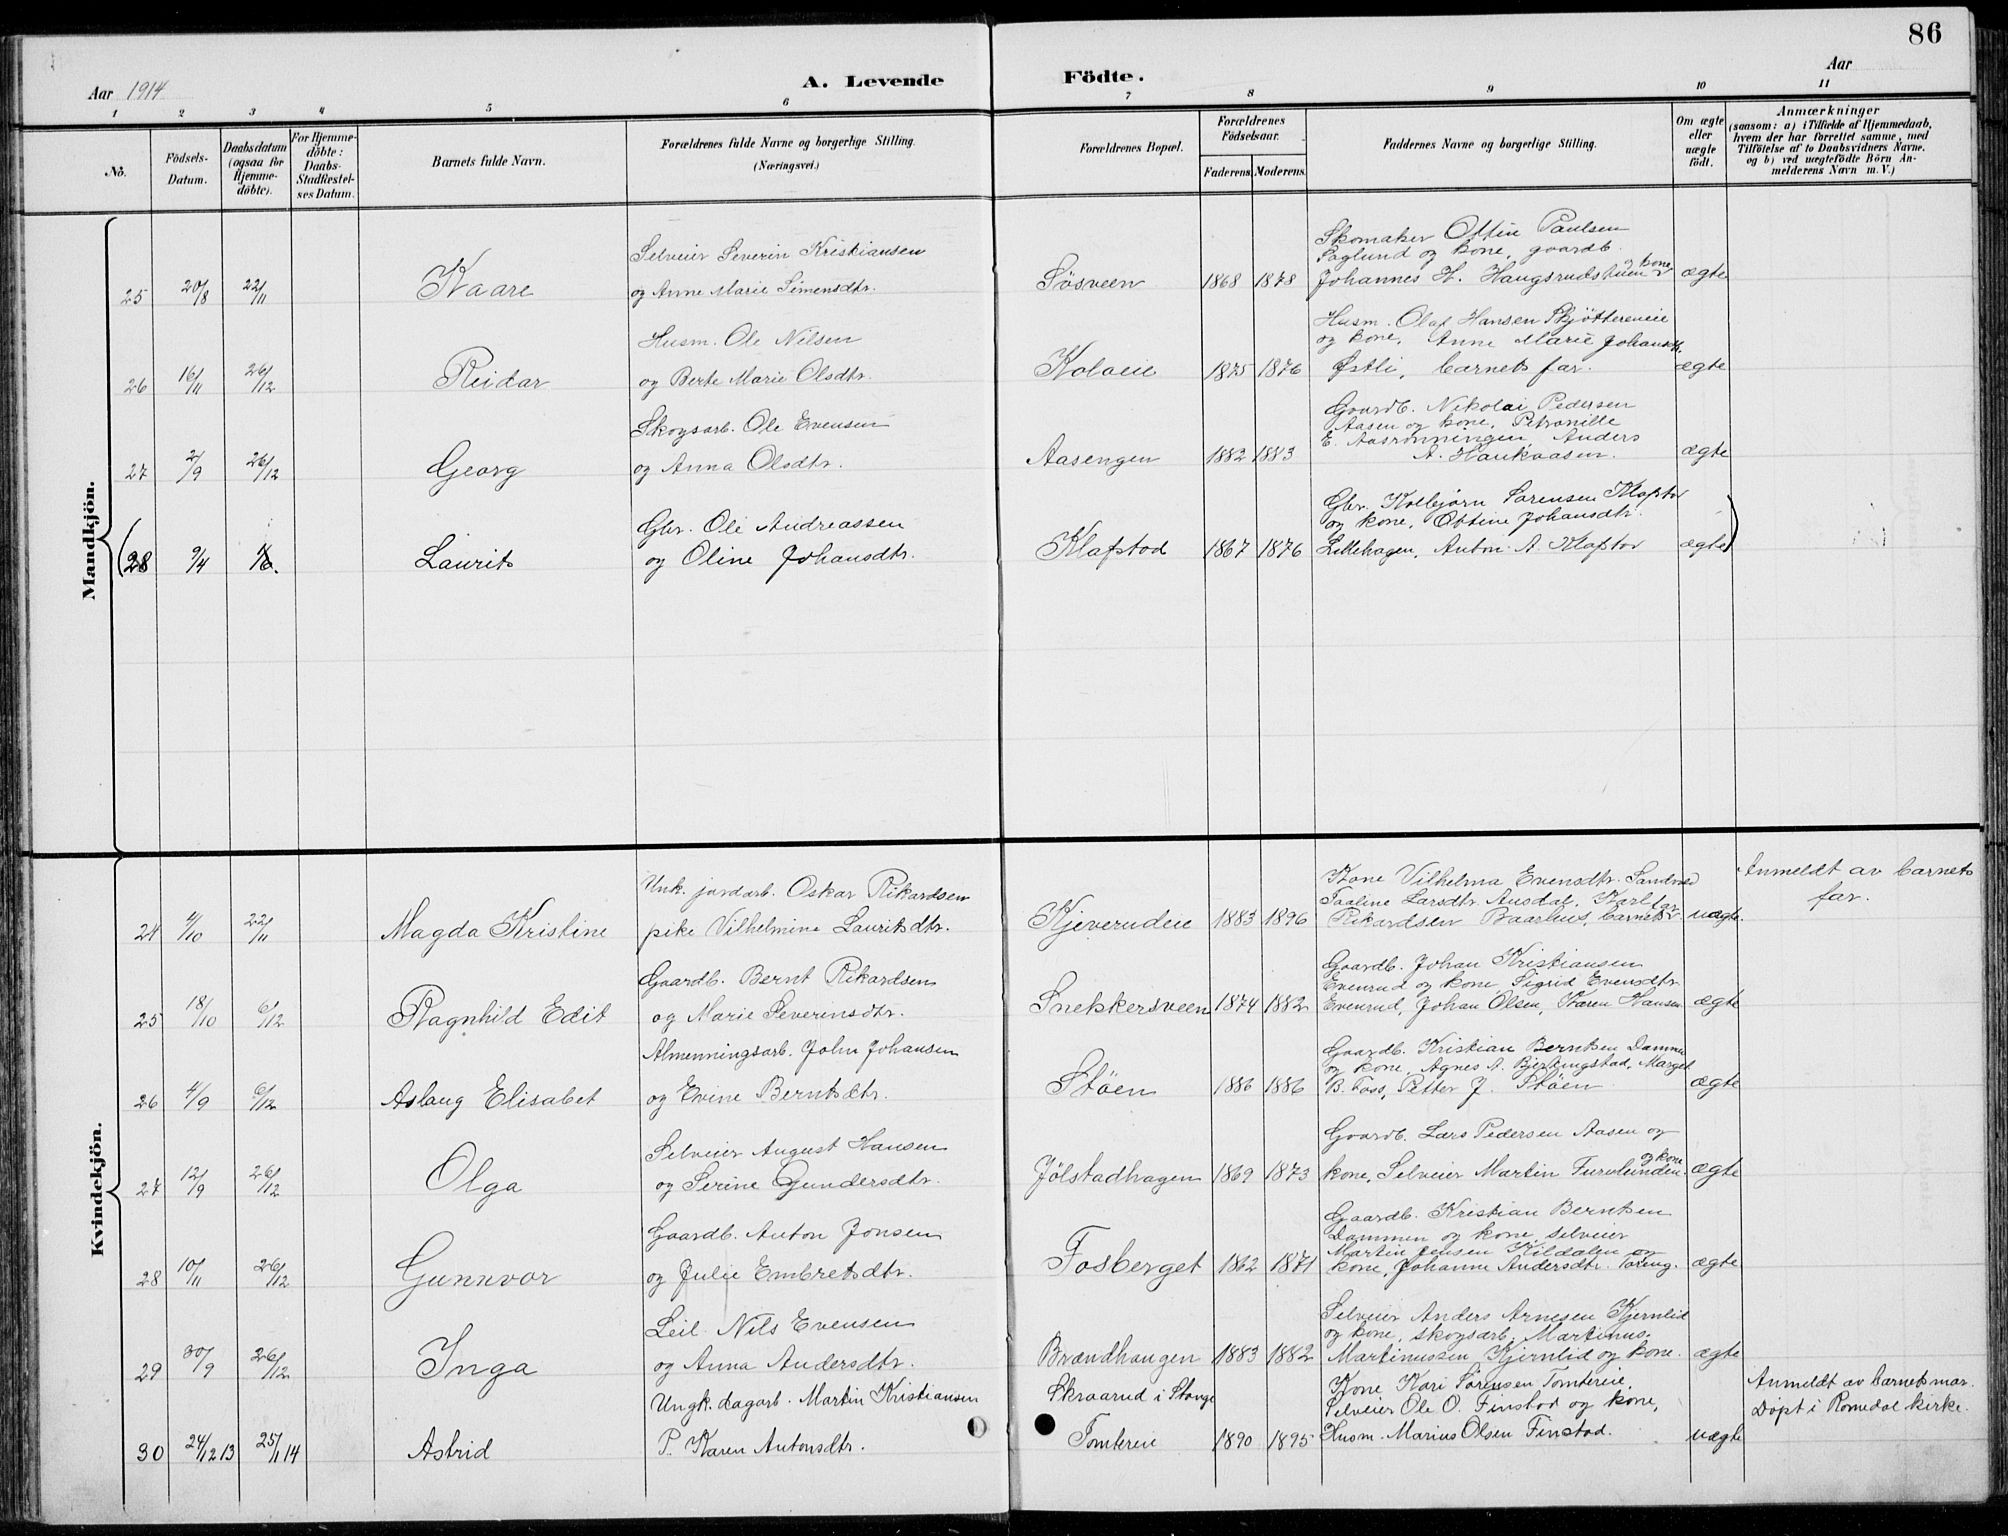 86
Aar 1914
A. Levende Födte.
Aar
1 2 3 4 5 6 7 8 9 10 11
No.
Födsels-Datum.
Daabsdatum (ogsaa for Hjemme-döbte).
For Hjemme-döbte: Daabs-Stadfæstel-ses Datum.
Barnets fulde Navn.
Forældrenes fulde Navne og borgerlige Stilling. (Næringsvei.)
Forældrenes Bopæl.
Forældrenes Födselsaar.
Faderens. Moderens.
Faddernes Navne og borgerlige Stilling.
Om ægte eller uægte födt.
Anmærkninger
(saasom: a) i Tilfælde af Hjemmedaab,
hvem der har forrettet samme, med
Tilföielse af to Daabsvidners Navne.
og b) ved uægtefödte Börn An-
melderens Navn m. V.)
Mandkjön.
25 20/8 22/11 Kaare
Selveier Severin Kristiansen
og Anne Marie Simensdtr.
Søsveen 1868 1878
Skomaker Ottin Paulsen
Saglund og kone, gaardb.
Johannes H. Haugsrudstuen og kone
ægte
26 16/11 26/12 Reidar
Husm. Ole Nilsen
og Berte Marie Olsdtr.
Kolveie 1875 1876
Husm. Olaf Hansen Skjøttereneie
og kone, Anne Marie Johansdtr.
Østli, barnets far.
ægte
27 2/9 26/12 Georg
Skogsarb. Ole Evensen
og Anna Olsdtr.
Aasengen 1882 1883
Gaardb. Nikolai Pedersen
Aasen og kone, Petronille
E. Aasrønningen, Anders
A. Haukaasen.
ægte
(28 9/4 1/6. Laurits
Gbr. Ole Andreassen
og Oline Johansdtr.
Klafstad 1867 1876
Gbr. Kolbjørn Sørensen Klofstor
og kone, Ottine Johansdtr.
Lillehagen, Anton A. Klafstor
ægte)
Kvindekjön.
24 4/10 22/11 Magda Kristine
Unk. jordarb. Oskar Rikardsen
pike Vilhelmine Lauritsdtr.
Kjeverudeie 1883 1896
Kone Vilhelma Evensdtr. Sandved
Taaline Larsdtr. Ausdal, Karl
Rikardsen Baarhus, barnets far
uægte.
Anmeldt av barnets
far.
25 18/10 6/12 Ragnhild Edit
Gaardb. Bernt Rikardsen
og Marie Severinsdtr.
Snekkersveen 1874 1882
Gaardb. Johan Kristiansen
Evenrud og kone, Sigrid Evensdtr.
Evenrud, Johan Olsen, Karen Hansen
ægte
26 4/9 6/12 Aslaug Elisabet
Almenningsarb. John Johansen
og Evine Berntsdtr.
Støen 1886 1886
Gaardb. Kristian Berntsen Dammen
og kone, Agnes A. Bjerkingstad, Marget
B. Foss, Petter J. Støen.
ægte
27 12/9 26/12 Olga
Selveier August Hansen
og Serine Gundersdtr.
Jølstadhagen 1869 1873
Gaardb. Lars Pedersen Aasen og
kone, Selveier Martin Furulunden og kone.
ægte
28 10/11 26/12 Gunnvor
Gaardb. Anton Jonsen
og Julie Embretsdtr.
Fosberget 1862 1871
Gaardb. Kristian Berntsen
Dammen og kone, selveier
Martin Jensen Kildalen og
kone, Johanne Andersdtr. Toreng.
ægte
29 30/9 26/12 Inga
Leil. Nils Evensen
og Anna Andersdtr.
Brændhaugen 1883 1882
Selveier Anders Arnesen Kjernlid
og kone, skogsarb. Martinus
Martinussen Kjernlid og kone.
ægte
30 24/12 13 25/1 14 Astrid
Ungk. dagarb. Martin Kristiansen
P. Karen Antonsdtr.
Skraarud i Stange
Tomtereie 1890 1895
Kone Kari Sørensen Tomtereie,
Selveier Ole O. Finstad og kone,
Husm. Marius Olsen Finstad.
uægte
Anmeldt av barnets mor.
Døpt i Romedal kirke.